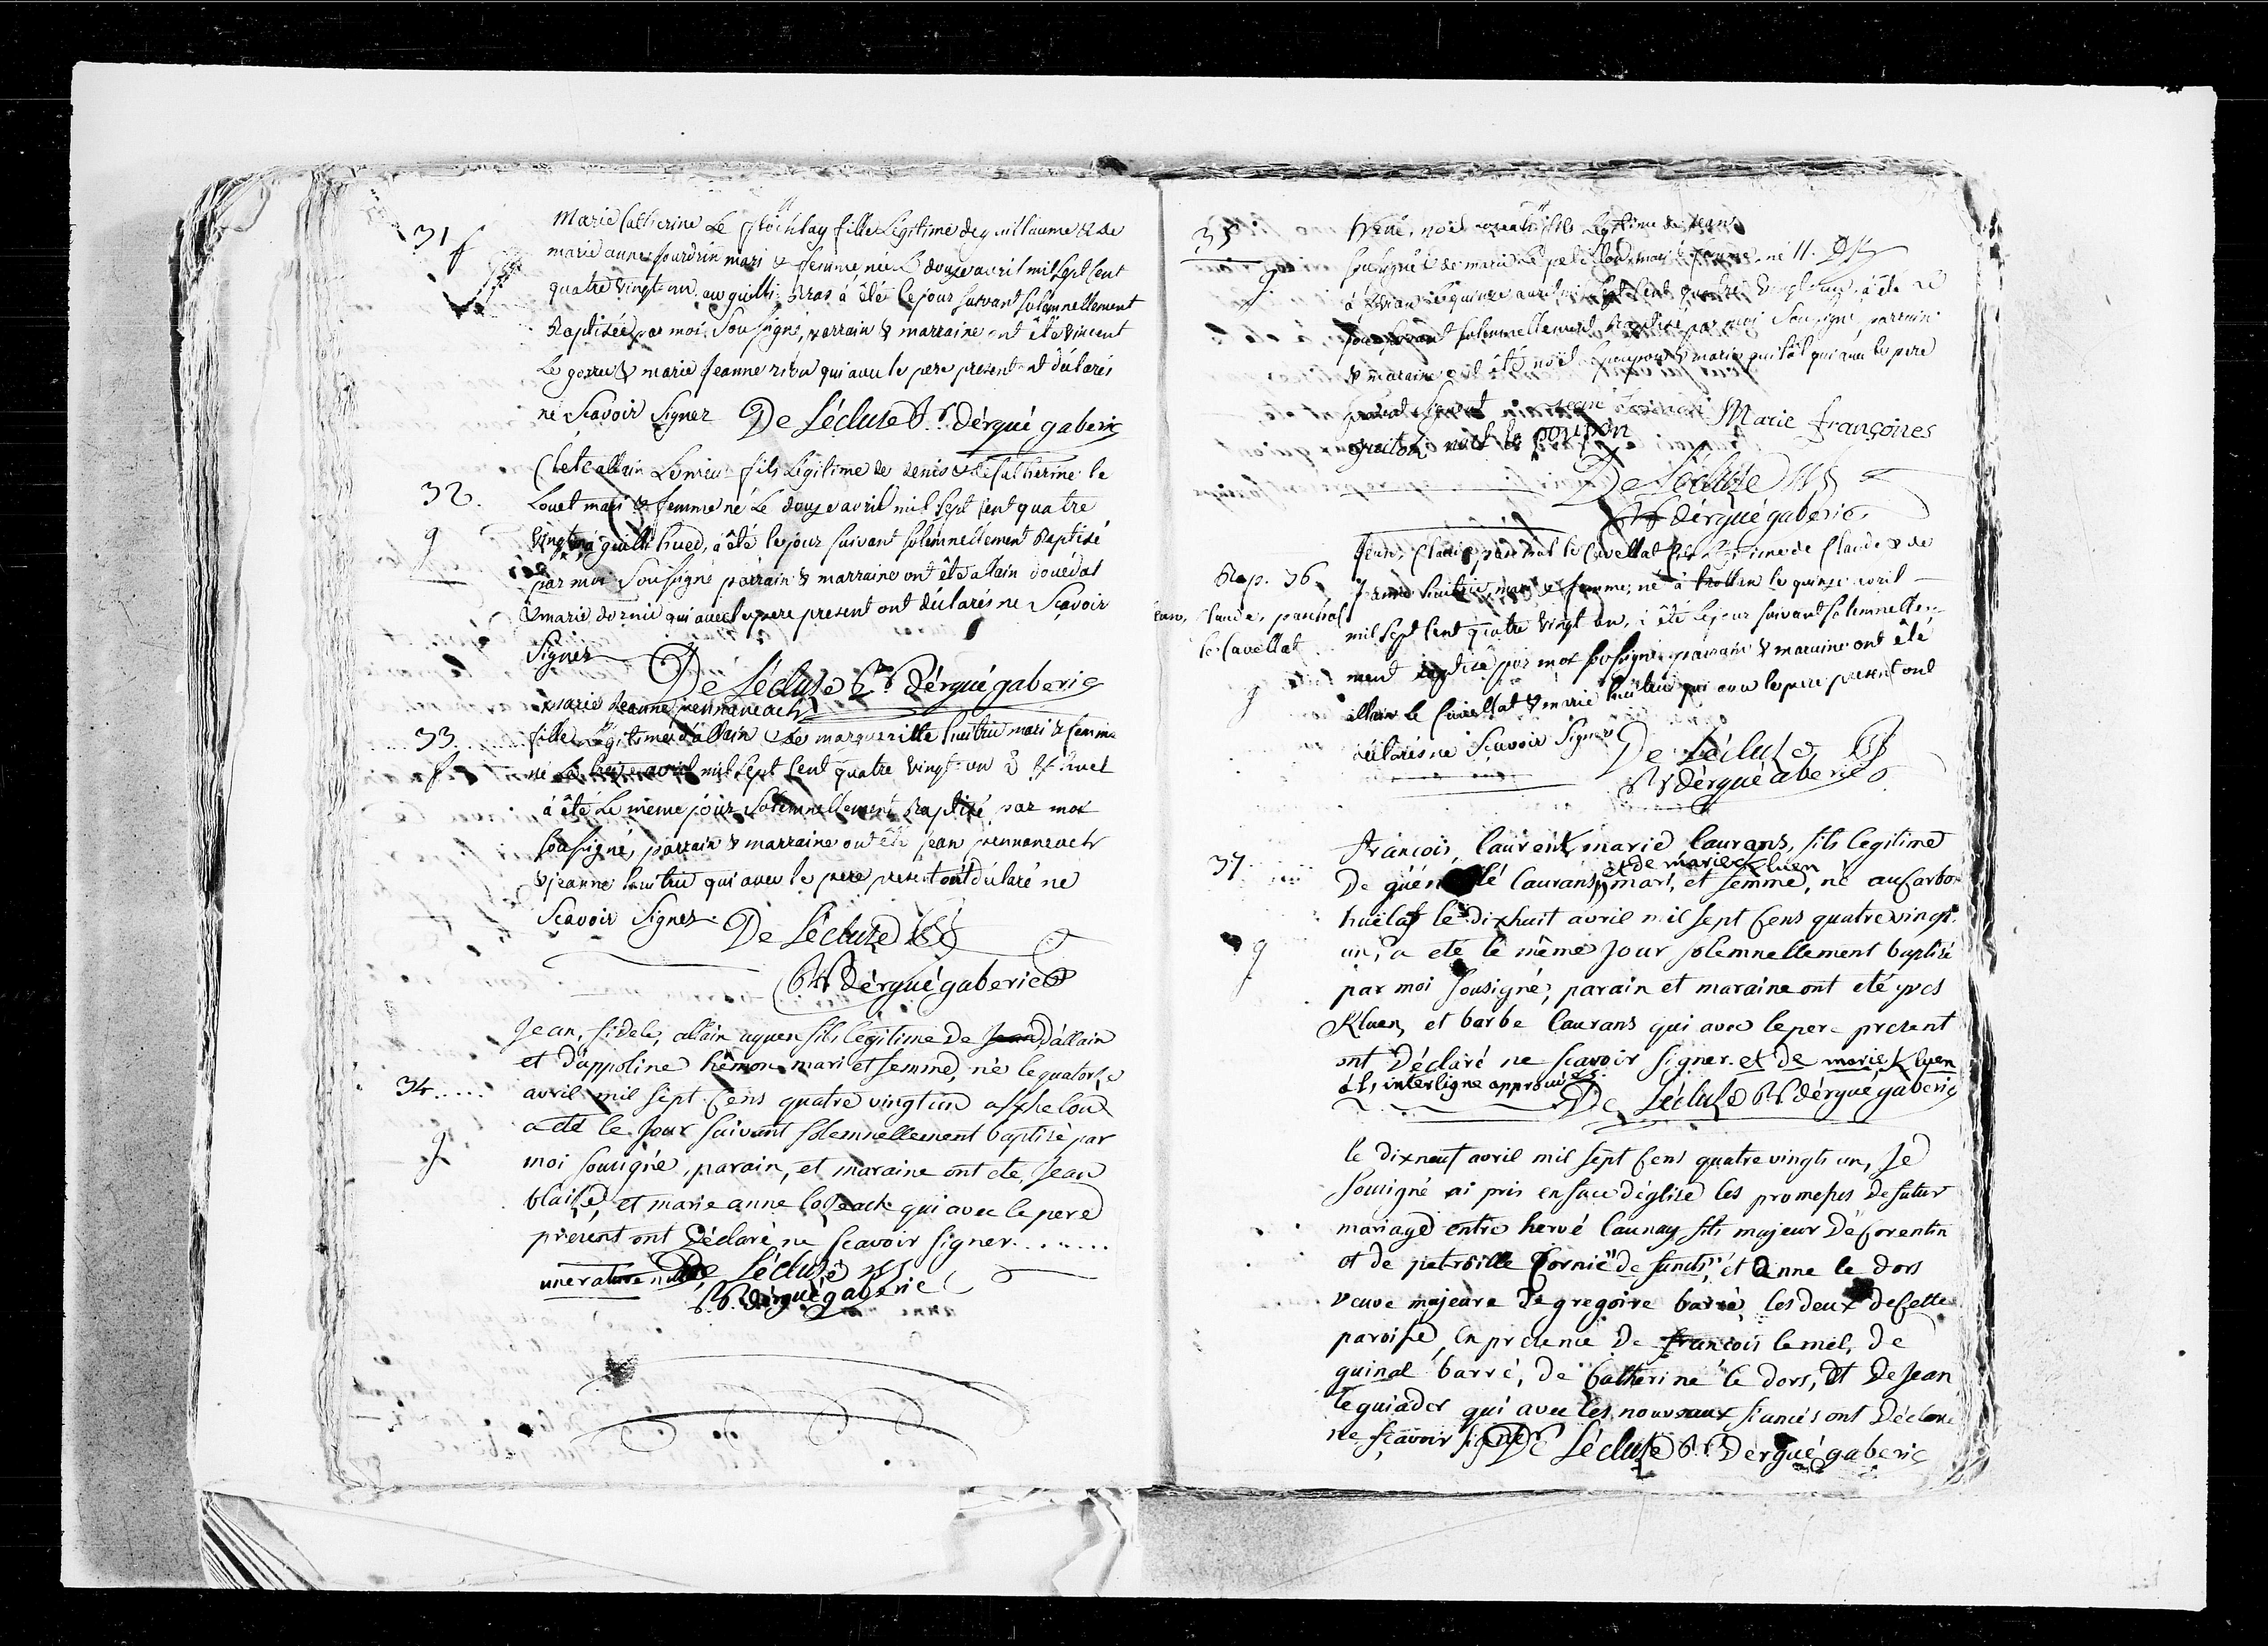 31 f
Marie Catherine Le fill Légitime de guillaume & de
marie anne jourdrin mari & femme née Le douze avril mil sept cent
quatre vingt un, au guilli bras à été le jour suivant solemnellement
Baptisée par moi Sousigné, parrain & marraine ont été vincent
Le goxxe & marie jeanne qui avec le pere present ont déclarés
ne Scavoir Signer De Lécluse Rr dérgué gaberic
32.
g
Clete allain Lemieu fils Légitime de denis & de Catherine le
Louet mari & femme né Le douze avril mil sept cent quatre
vingt un à guilli hued, à été le jour suivant solemnellement Baptisé
par moi Sousigné parrain & marraine ont été allain douédal
& marie dornic qui avec le pere present ont déclarés ne Scavoir
Signer
De Lécluse Rr dérgué gaberic
marie Jeanne pennaneach
33
f
fille Légitime d'allain & de margueritte huitric mari & femme
né Le treize avril mil sept cent quatre vingt un
à été Le meme jour Solemnellement Baptisé par moi
sousigné, parrain & marraine ont été jean pennaneach
& jeanne huitric qui avec le pere present ont déclaré ne
Scavoir Signer De Lécluse
Rr dérgué gaberic
Jean, fidele, allain uguen fils legitime De Jean D'allain
et D'appoline hémon mari et femme, né le quatorze
34.....
g
avril mil sept cens quatre vingt un
a été le Jour suivant solemnellement baptisé par
moi sousigné, parain, et maraine ont été, Jean
blaisé, et marie anne qui avec le pere
present ont Déclaré ne scavoir signer.......
une rature nulle De Lécluse
Rr. dérgué gaberic
35
g
René, noel fils Légitime de jean
Sousigné & de marie Le petillon mari & femme, né
à le quinze avril mil sept cent quatre vingt un, à été le
jour suivant solemnellement Baptisé par moi Sousigné, parrain
& maraine ont été noël & marie quillot qui avec le pere
present signent Jean Marie françoises
noel le poupon
De Lécluse
Rr dérgué gaberic
Bap. 36
jean, claude, paschal
le Cavellat
g
jean, Claude, paschal le Cavellat fils Légitime de Claude & de
Jeanne huitric, mari & femme, né à le quinze avril
mil sept cent quatre vingt un, à été le jour suivant solemnelle-
ment baptisé par moi sousigné parrain & maraine ont été
allain le Cavellat & marie huitric qui avec le pere present ont
déclarés ne Scavoir Signer De Lécluse
Rr dérgué gaberic
37
g
François, laurent, marie laurans, fils legitime
et de marie Kluen
De guénolé laurans, mari, et femme, né au carbon
huëlaf le dixhuit avril mil sept cens quatre vingt
un, a été le même Jour solemnellement baptisé
par moi sousigné, parain et maraine ont été yves
Kluen, et barbe laurans qui avec le pere present
ont Déclaré ne scavoir signer. et de marie Kluen
interligne approuvé
De Lécluse Rr dérgué gaberic
le dixneuf avril mil sept cens quatre vingts un, Je
sousigné ai pris en face d'église les promesses de futur
mariage entre hervé launay fils majeur De corentin
et de petroille Cornic de funts, et Anne le dors
veuve majeure De gregoire barré, les deux De Cette
paroisse, en présence De françois le mel, De
guinal barré, De Catherine le dors, et De Jean
le guiader qui avec les nouveaux fiancés ont Déclaré
ne scavoir signer De Lécluse Rr Dergué gaberic